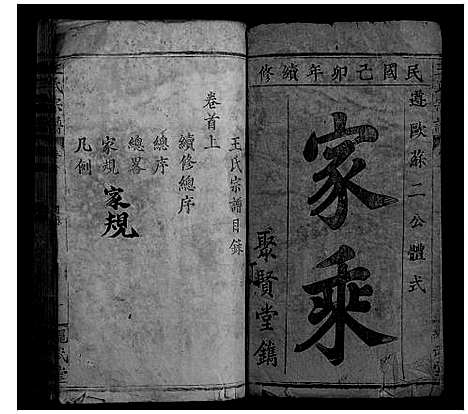 民國己卯年續修
遵歐蘇二公體式
家乘
聚賢堂鐫
王氏宗譜目錄
卷首上
續修總序
總序
總畧
家規 家規
凡例